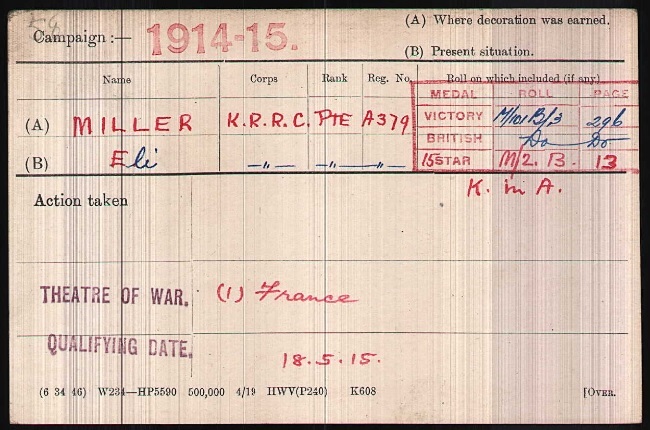 (A) Where decoration was earned.
Campaign :— 1914-15.
(B) Present situation.
Name Corps Rank Reg. No. Roll on which included (if any)
MEDAL ROLL PAGE
(A) MILLER K.R.R.C. PTE A379 VICTORY M/101B/3 296
BRITISH Do Do
(B) Eli —"— —"— 15 STAR M/2. B. 13
K. in A.
Action taken
THEATRE OF WAR. (1) France
QUALIFYING DATE. 18.5.15.
(6 34 46) W234—HP5590 500,000 4/19 HWV(P240) K608 [OVER.